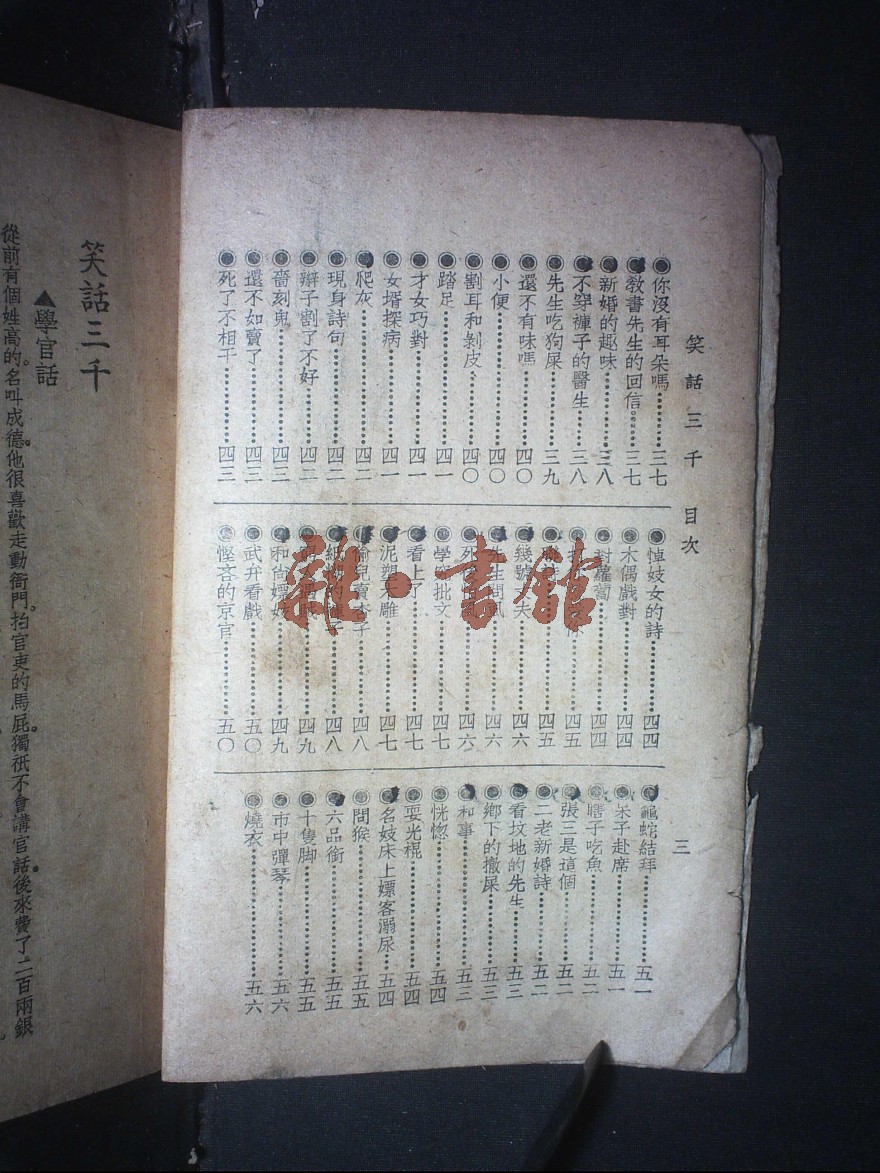 笑話三千 目次
三
你沒有耳朵嗎…………三七
教書先生的回信…………三七
新婚的趣味…………三八
不穿褲子的醫生…………三八
先生吃狗屎…………三九
還不有味嗎…………四〇
小便…………四〇
割耳和剝皮…………四〇
踏足…………四一
才女巧對…………四一
女壻探病…………四一
爬灰…………四二
現身詩句…………四二
辮子割了不好…………四二
嗇刻鬼…………四三
還不如賣了…………四三
死了不相干…………四三
悼妓女的詩…………四四
木偶戲對…………四四
封蘿蔔…………四四
…………四五
…………四五
幾號夫…………四六
先生…………四六
死…………四六
學究批文…………四七
看上了…………四七
泥塑木雕…………四七
偷兒賣杏子…………四八
紙…子…………四八
…………四九
和尚嫖妓…………四九
武弁看戲…………五〇
慳吝的京官…………五〇
龜蛇結拜…………五一
呆子赴席…………五一
瞎子吃魚…………五二
張三是這個…………五二
二老新婚詩…………五二
看坟地的先生…………五三
鄉下的撒屎…………五三
和事…………五三
恍惚…………五四
耍光棍…………五四
名妓床上嫖客溺尿…………五四
問猴…………五五
六品銜…………五五
十隻脚…………五五
市中彈琴…………五六
燒衣…………五六
笑話三千
▲學官話
從前有個姓高的。名叫成德。他很喜歡走動衙門。拍官吏的馬屁。獨祇不會講官話。後來費了二百兩銀
雜·書館